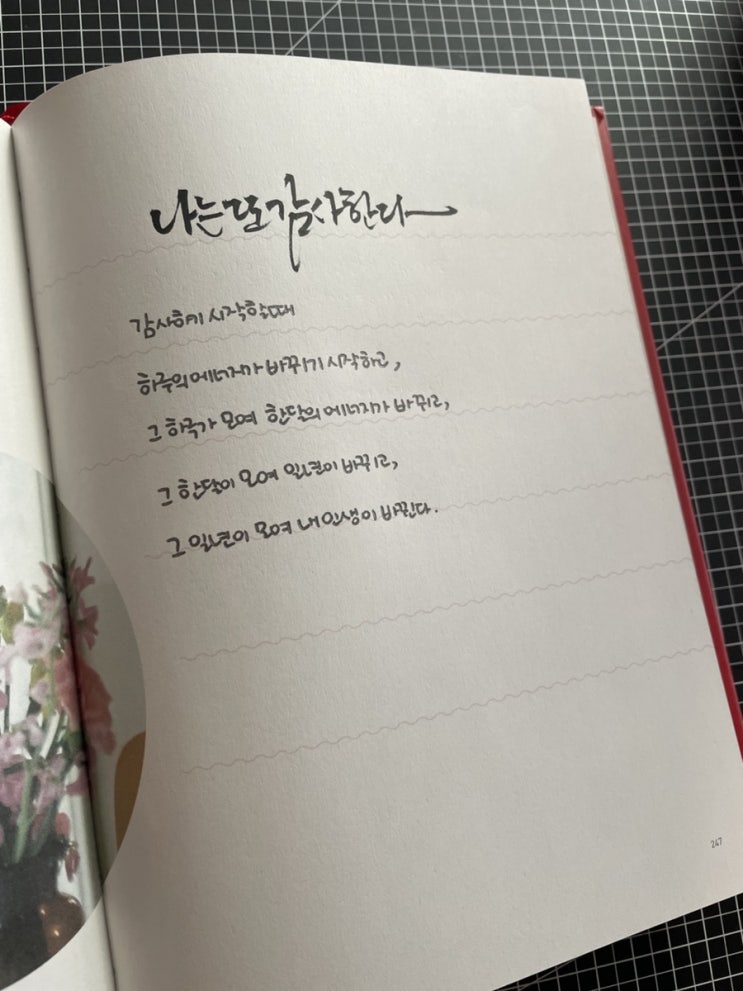 나는 또 감사한다
감사하기 시작할 때
하루의 에너지가 바뀌기 시작하고,
그 하루가 모여 한달의 에너지가 바뀌고,
그 한달이 모여 일년이 바뀌고,
그 일년이 모여 내 인생이 바뀐다.
247